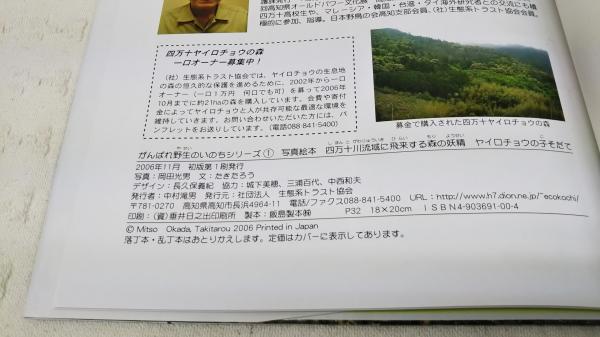 回高知県オールドパワー文化展
四万十高校生や、マレーシア・韓国・台湾・タイ海外研究者との交流にも積
極的に参加、指導。日本野鳥の会高知支部会員、(社)生態系トラスト協会会員。
四万十ヤイロチョウの森
一口オーナー募集中!
(社)生態系トラスト協会では、ヤイロチョウの生息地
の森の恒久的な保護を進めるために、2002年から一口
オーナー(一口1万円 何口でも可)を募って2006年
10月までに約21haの森を購入しています。会費や寄付
金によってヤイロチョウと人が共存可能な最適な環境を
維持していきます。お問い合わせいただいた方には、パ
ンフレットをお送りしています。(電話088-841-5400)
募金で購入された四万十ヤイロチョウの森
がんばれ野生のいのちシリーズ① 写真絵本 四万十川流域に飛来する森の妖精 ヤイロチョウの子そだて
2006年11月 初版第1刷発行
写真:岡田光男 文:たきたろう
デザイン:長久保義紀 協力:城下美穂、三浦百代、中西和夫
発行者:中村滝男 発行元:社団法人 生態系トラスト協会
〒781-0270 高知県高知市長浜4964-11 電話/ファクス088-841-5400 URL:http://www.h7.dion.ne.jp/~ecokochi/
印刷:(資)垂井日之出印刷所 製本:飯島製本㈱ P32 18×20cm ISBN4-903691-00-4
© Mitso Okada, Takitarou 2006 Printed in Japan
落丁本・乱丁本はおとりかえします。定価はカバーに表示してあります。